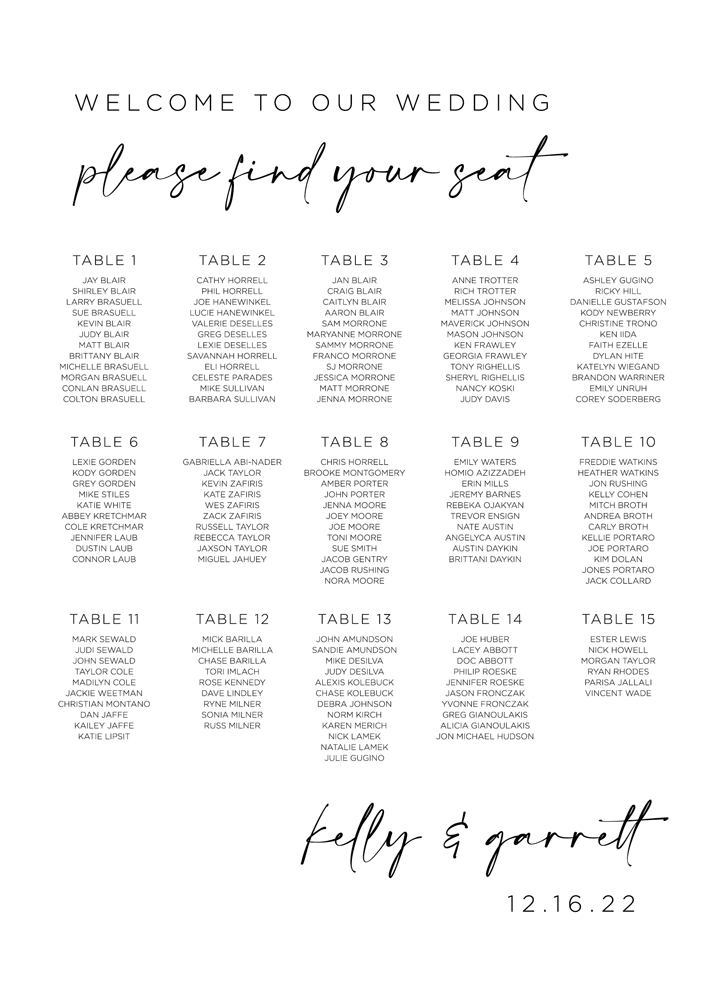 WELCOME TO OUR WEDDING
please find your seat
TABLE 1
JAY BLAIR
SHIRLEY BLAIR
LARRY BRASUELL
SUE BRASUELL
KEVIN BLAIR
JUDY BLAIR
MATT BLAIR
BRITTANY BLAIR
MICHELLE BRASUELL
MORGAN BRASUELL
CONLAN BRASUELL
COLTON BRASUELL
TABLE 2
CATHY HORRELL
PHIL HORRELL
JOE HANEWINKEL
LUCIE HANEWINKEL
VALERIE DESELLES
GREG DESELLES
LEXIE DESELLES
SAVANNAH HORRELL
ELI HORRELL
CELESTE PARADES
MIKE SULLIVAN
BARBARA SULLIVAN
TABLE 3
JAN BLAIR
CRAIG BLAIR
CAITLYN BLAIR
AARON BLAIR
SAM MORRONE
MARYANNE MORRONE
SAMMY MORRONE
FRANCO MORRONE
SJ MORRONE
JESSICA MORRONE
MATT MORRONE
JENNA MORRONE
TABLE 4
ANNE TROTTER
RICH TROTTER
MELISSA JOHNSON
MATT JOHNSON
MAVERICK JOHNSON
MASON JOHNSON
KEN FRAWLEY
GEORGIA FRAWLEY
TONY RIGHELLIS
SHERYL RIGHELLIS
NANCY KOSKI
JUDY DAVIS
TABLE 5
ASHLEY GUGINO
RICKY HILL
DANIELLE GUSTAFSON
KODY NEWBERRY
CHRISTINE TRONO
KEN IIDA
FAITH EZELLE
DYLAN HITE
KATELYN WIEGAND
BRANDON WARRINER
EMILY UNRUH
COREY SODERBERG
TABLE 6
LEXIE GORDEN
KODY GORDEN
GREY GORDEN
MIKE STILES
KATIE WHITE
ABBEY KRETCHMAR
COLE KRETCHMAR
JENNIFER LAUB
DUSTIN LAUB
CONNOR LAUB
TABLE 7
GABRIELLA ABI-NADER
JACK TAYLOR
KEVIN ZAFIRIS
KATE ZAFIRIS
WES ZAFIRIS
ZACK ZAFIRIS
RUSSELL TAYLOR
REBECCA TAYLOR
JAXSON TAYLOR
MIGUEL JAHUEY
TABLE 8
CHRIS HORRELL
BROOKE MONTGOMERY
AMBER PORTER
JOHN PORTER
JENNA MOORE
JOEY MOORE
JOE MOORE
TONI MOORE
SUE SMITH
JACOB GENTRY
JACOB RUSHING
NORA MOORE
TABLE 9
EMILY WATERS
HOMIO AZIZZADEH
ERIN MILLS
JEREMY BARNES
REBEKA OJAKYAN
TREVOR ENSIGN
NATE AUSTIN
ANGELYCA AUSTIN
AUSTIN DAYKIN
BRITTANI DAYKIN
TABLE 10
FREDDIE WATKINS
HEATHER WATKINS
JON RUSHING
KELLY COHEN
MITCH BROTH
ANDREA BROTH
CARLY BROTH
KELLIE PORTARO
JOE PORTARO
KIM DOLAN
JONES PORTARO
JACK COLLARD
TABLE 11
MARK SEWALD
JUDI SEWALD
JOHN SEWALD
TAYLOR COLE
MADILYN COLE
JACKIE WEETMAN
CHRISTIAN MONTANO
DAN JAFFE
KAILEY JAFFE
KATIE LIPSIT
TABLE 12
MICK BARILLA
MICHELLE BARILLA
CHASE BARILLA
TORI IMLACH
ROSE KENNEDY
DAVE LINDLEY
RYNE MILNER
SONIA MILNER
RUSS MILNER
TABLE 13
JOHN AMUNDSON
SANDIE AMUNDSON
MIKE DESILVA
JUDY DESILVA
ALEXIS KOLEBUCK
CHASE KOLEBUCK
DEBRA JOHNSON
NORM KIRCH
KAREN MERICH
NICK LAMEK
NATALIE LAMEK
JULIE GUGINO
TABLE 14
JOE HUBER
LACEY ABBOTT
DOC ABBOTT
PHILIP ROESKE
JENNIFER ROESKE
JASON FRONCZAK
YVONNE FRONCZAK
GREG GIANOULAKIS
ALICIA GIANOULAKIS
JON MICHAEL HUDSON
TABLE 15
ESTER LEWIS
NICK HOWELL
MORGAN TAYLOR
RYAN RHODES
PARISA JALLALI
VINCENT WADE
kelly & garrett
12.16.22